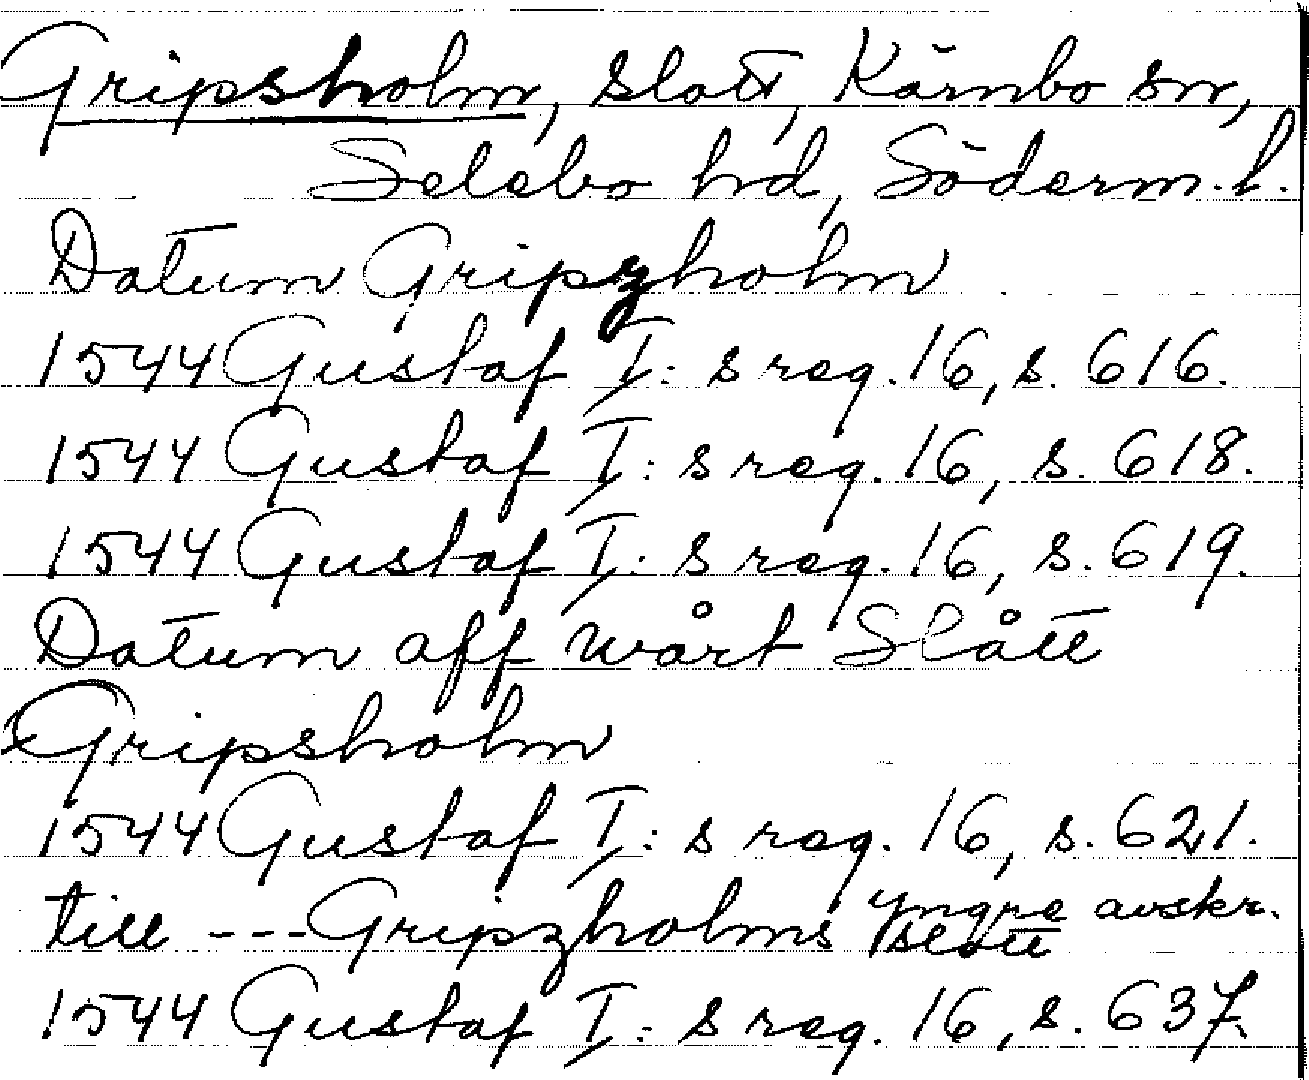 Gripsholm, slott, Kärnbo sn,
Selebo hd, Söderm. l.
Datum Gripzholm
1544 Gustaf I: s reg. 16, s. 616.
1544 Gustaf I: s reg. 16, s. 618.
1544 Gustaf I: s reg. 16, s. 619.
Datum aff wårt Slått
Gripsholm
1544 Gustaf I: s reg. 16, s. 621.
till --- Gripzholms slott yngre avskr.
1544 Gustaf I: s reg. 16, s. 637.